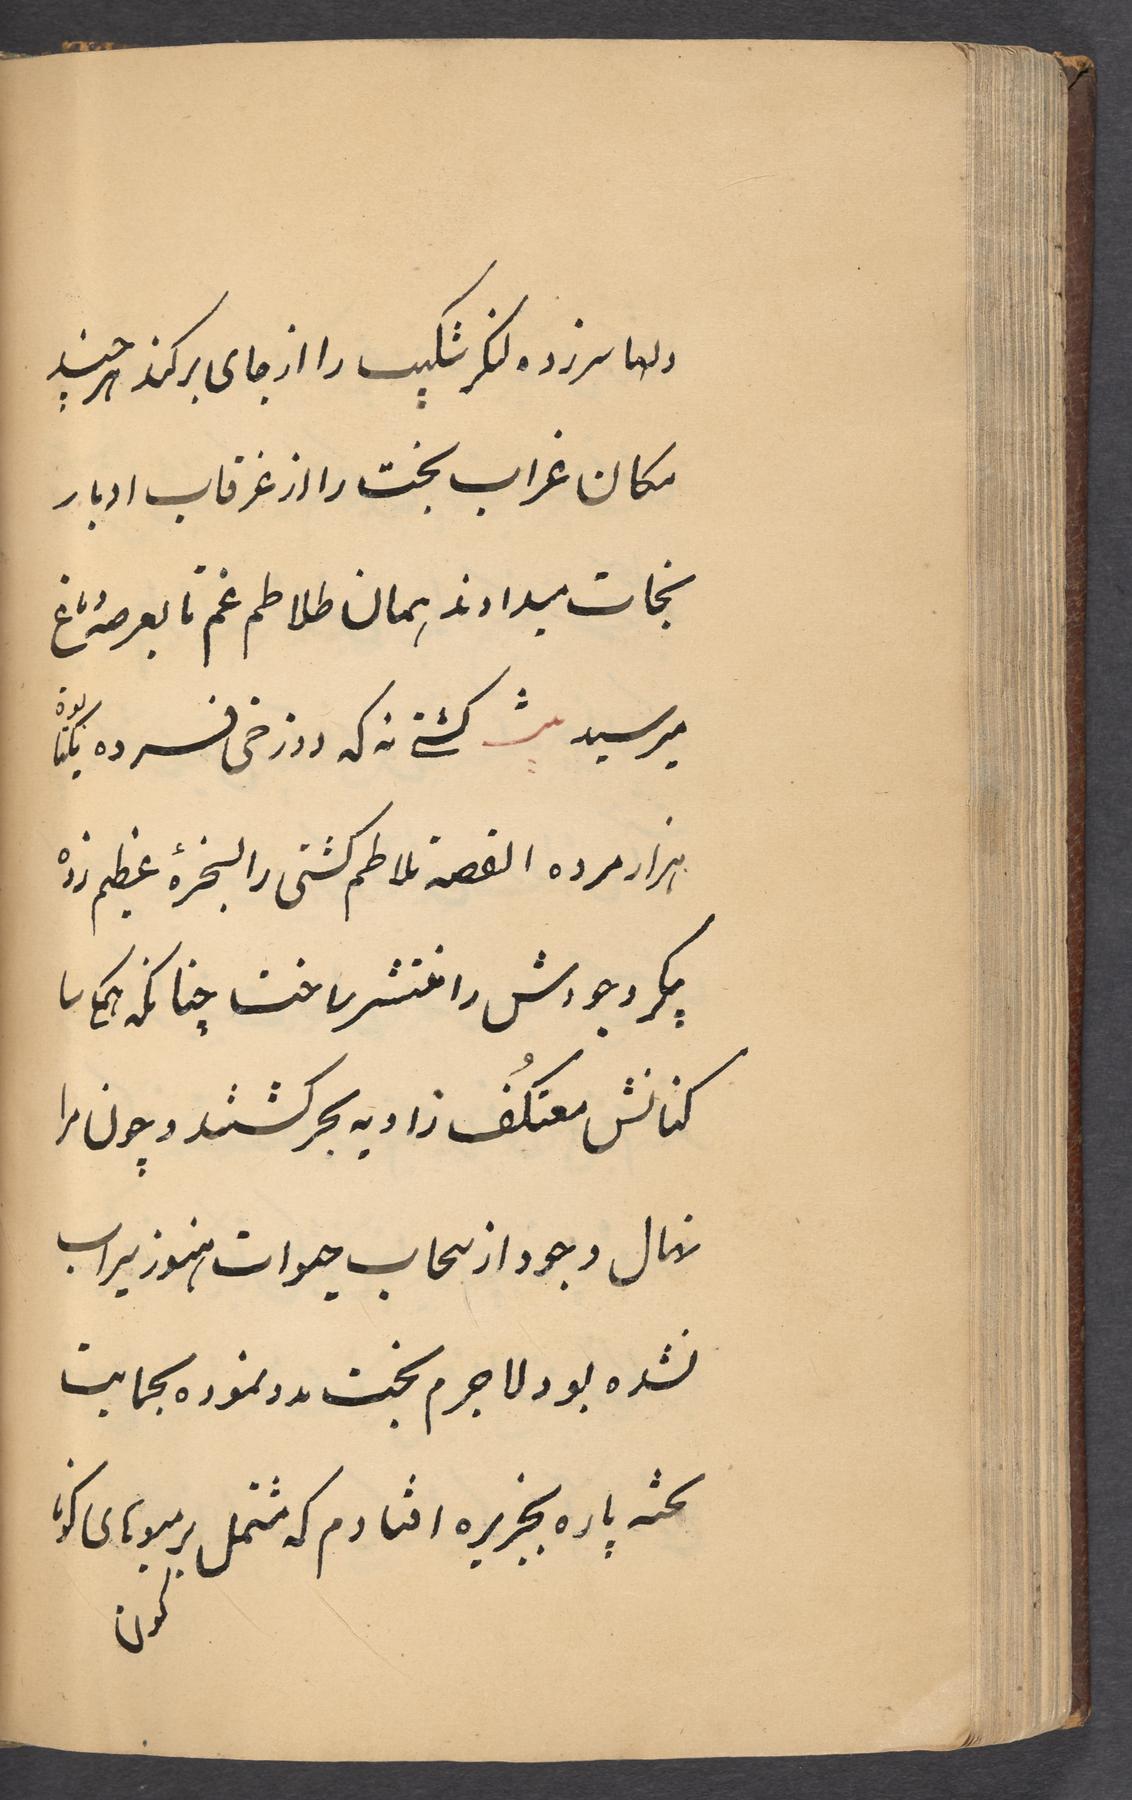 دلها سرزده لنکر شکیب را از جای برکند هرچند
مکان غراب بخت را از غرقاب ادبار
نجات میدادند همان طلاطم غم تا بعرصهٔ دماغ
میرسید بیت کشتے نه که دوزخی فسرده یکتابوت
هزار مرده القصه تلاطم کشتی را بسخرهٔ عظیم زده
پیکر وجودش را منتشر ساخت چنانکه همکی سا
کنانش معتکُف زاویه بحر کشتند و چون مرا
نهال وجود از سحاب حیوات هنوز سیراب
نشده بود لاجرم بخت مدد نموده بحمایت
تخته پاره بجزیره افتادم که مشتمل بر میوهای کونا
کون